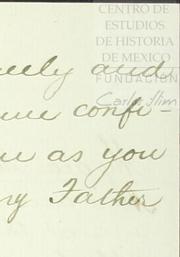 CENTRO DE
ESTUDIOS
DE HISTORIA
DE MEXICO
FUNDACIÓN
Carlos Slim
and
confi-
as you
Father